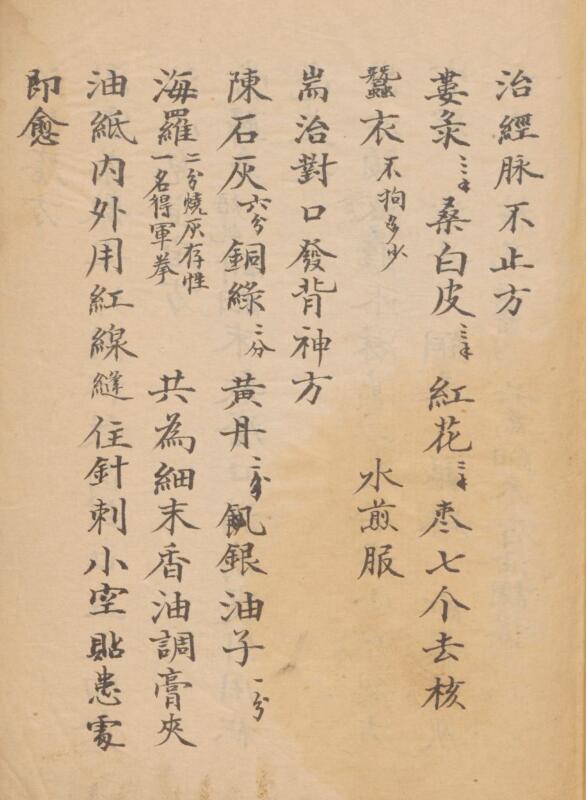 治經脉不止方
婁汆三半桑白皮三半紅花三半枣七个去核
蠶衣不拘多少 水煎服
耑治對口發背神方
陳石灰六分銅綠二分黃丹二分飢銀油子一分
海羅二分燒灰存性一名得軍拳 共為細末香油調膏夾
油紙內外用紅線縫住針刺小空貼患處
即愈